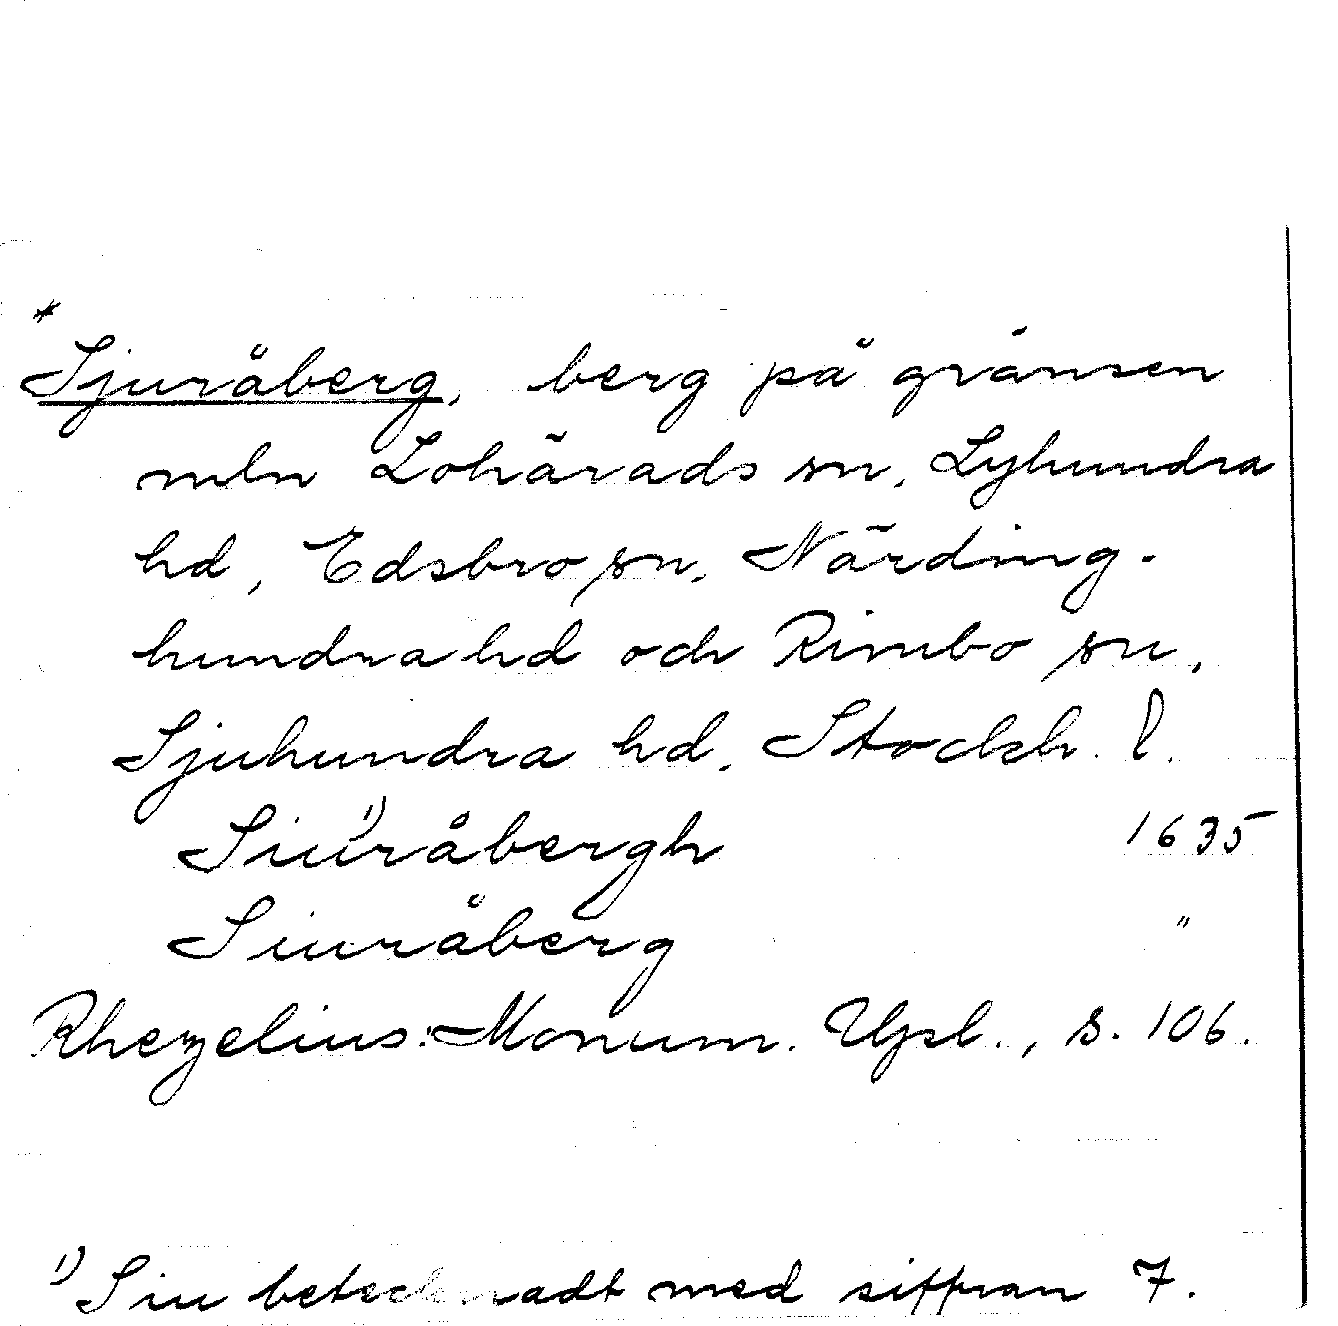 *
Sjuråberg, berg på gränsen
mln Lohärads sn, Lyhundra
hd, Edsbro sn, Närding-
hundra hd och Rimbo sn,
Sjuhundra hd, Stockh. l.
Siu¹⁾råbergh 1635
Siuråberg "
Rhezelius: Monum. Upsl., s. 106.
¹⁾ Siu betecknadt med siffran 7.